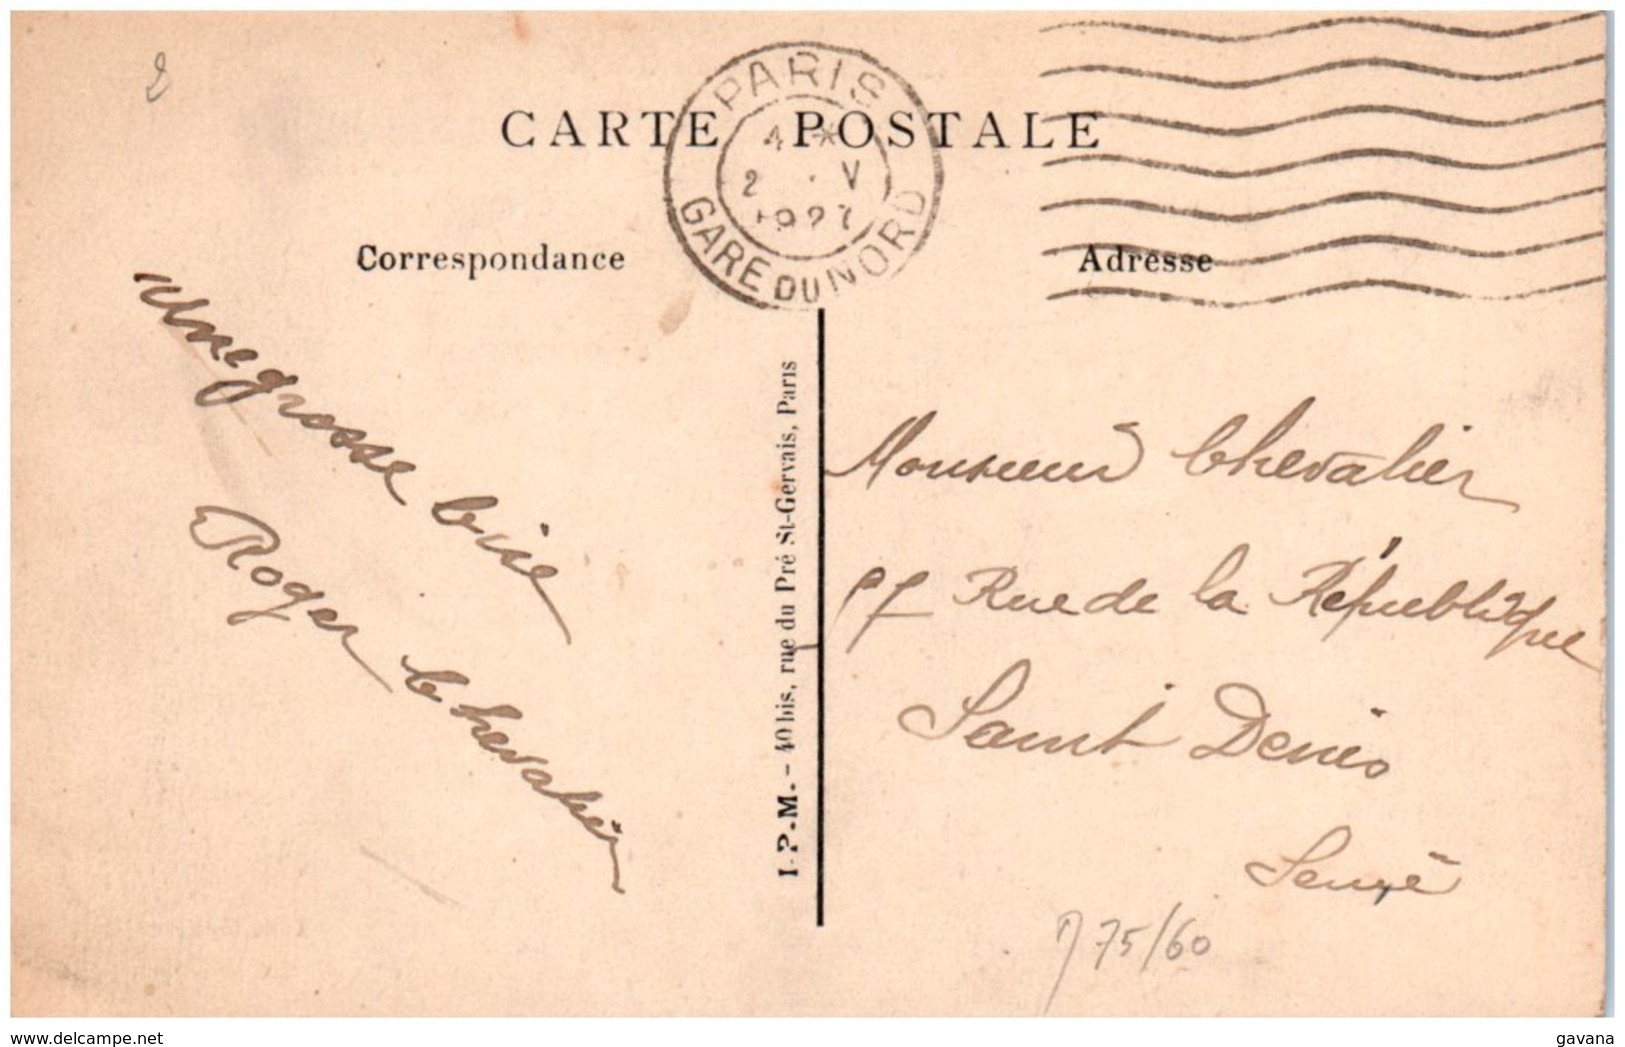 2
CARTE POSTALE
PARIS
4 *
2 . V
1927
GARE DU NORD
Correspondance
Adresse
Une grosse bise
Roger Chevalier
I-P-M. - 40 bis, rue du Pré St-Gervais, Paris
Monsieur Chevalier
97 Rue de la République
Saint Denis
Seine
75/60
www.delcampe.net
gavana